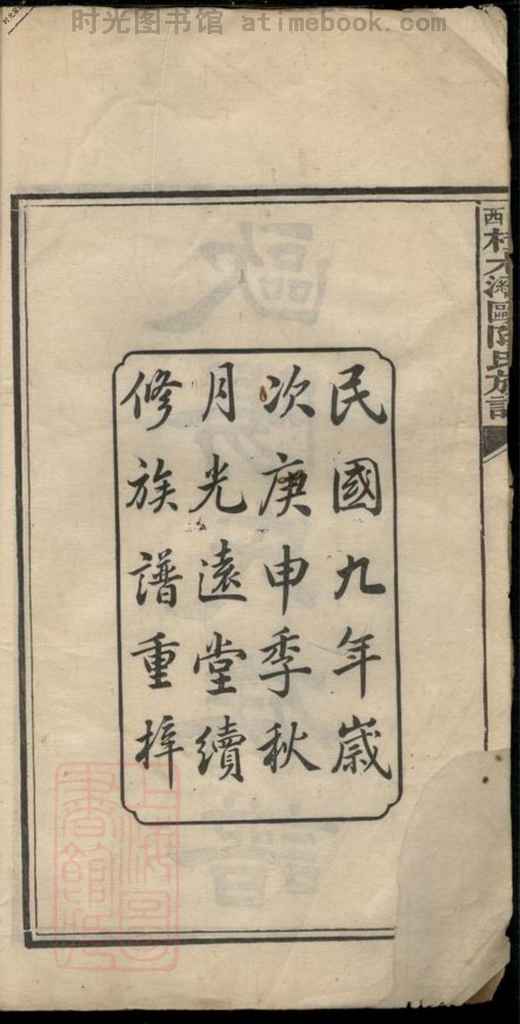 时光图书馆 atimebook.com
西村木溝歐陽氏族譜
民國九年嵗
次庚申季秋
月光遠堂續
修族譜重梓